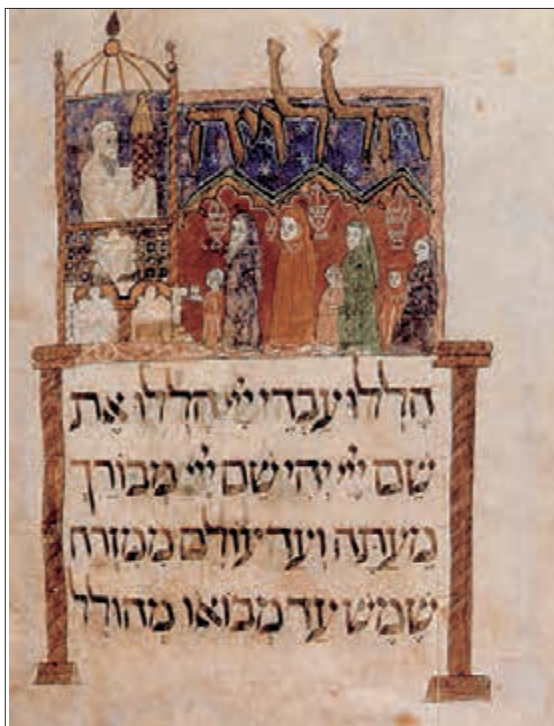 הללויה
הללו עבדי ייי הללו את
שם ייי יהי שם ייי מבורך
מעתה ועד עולם ממזרח
שמש ועד מבואו מהולל